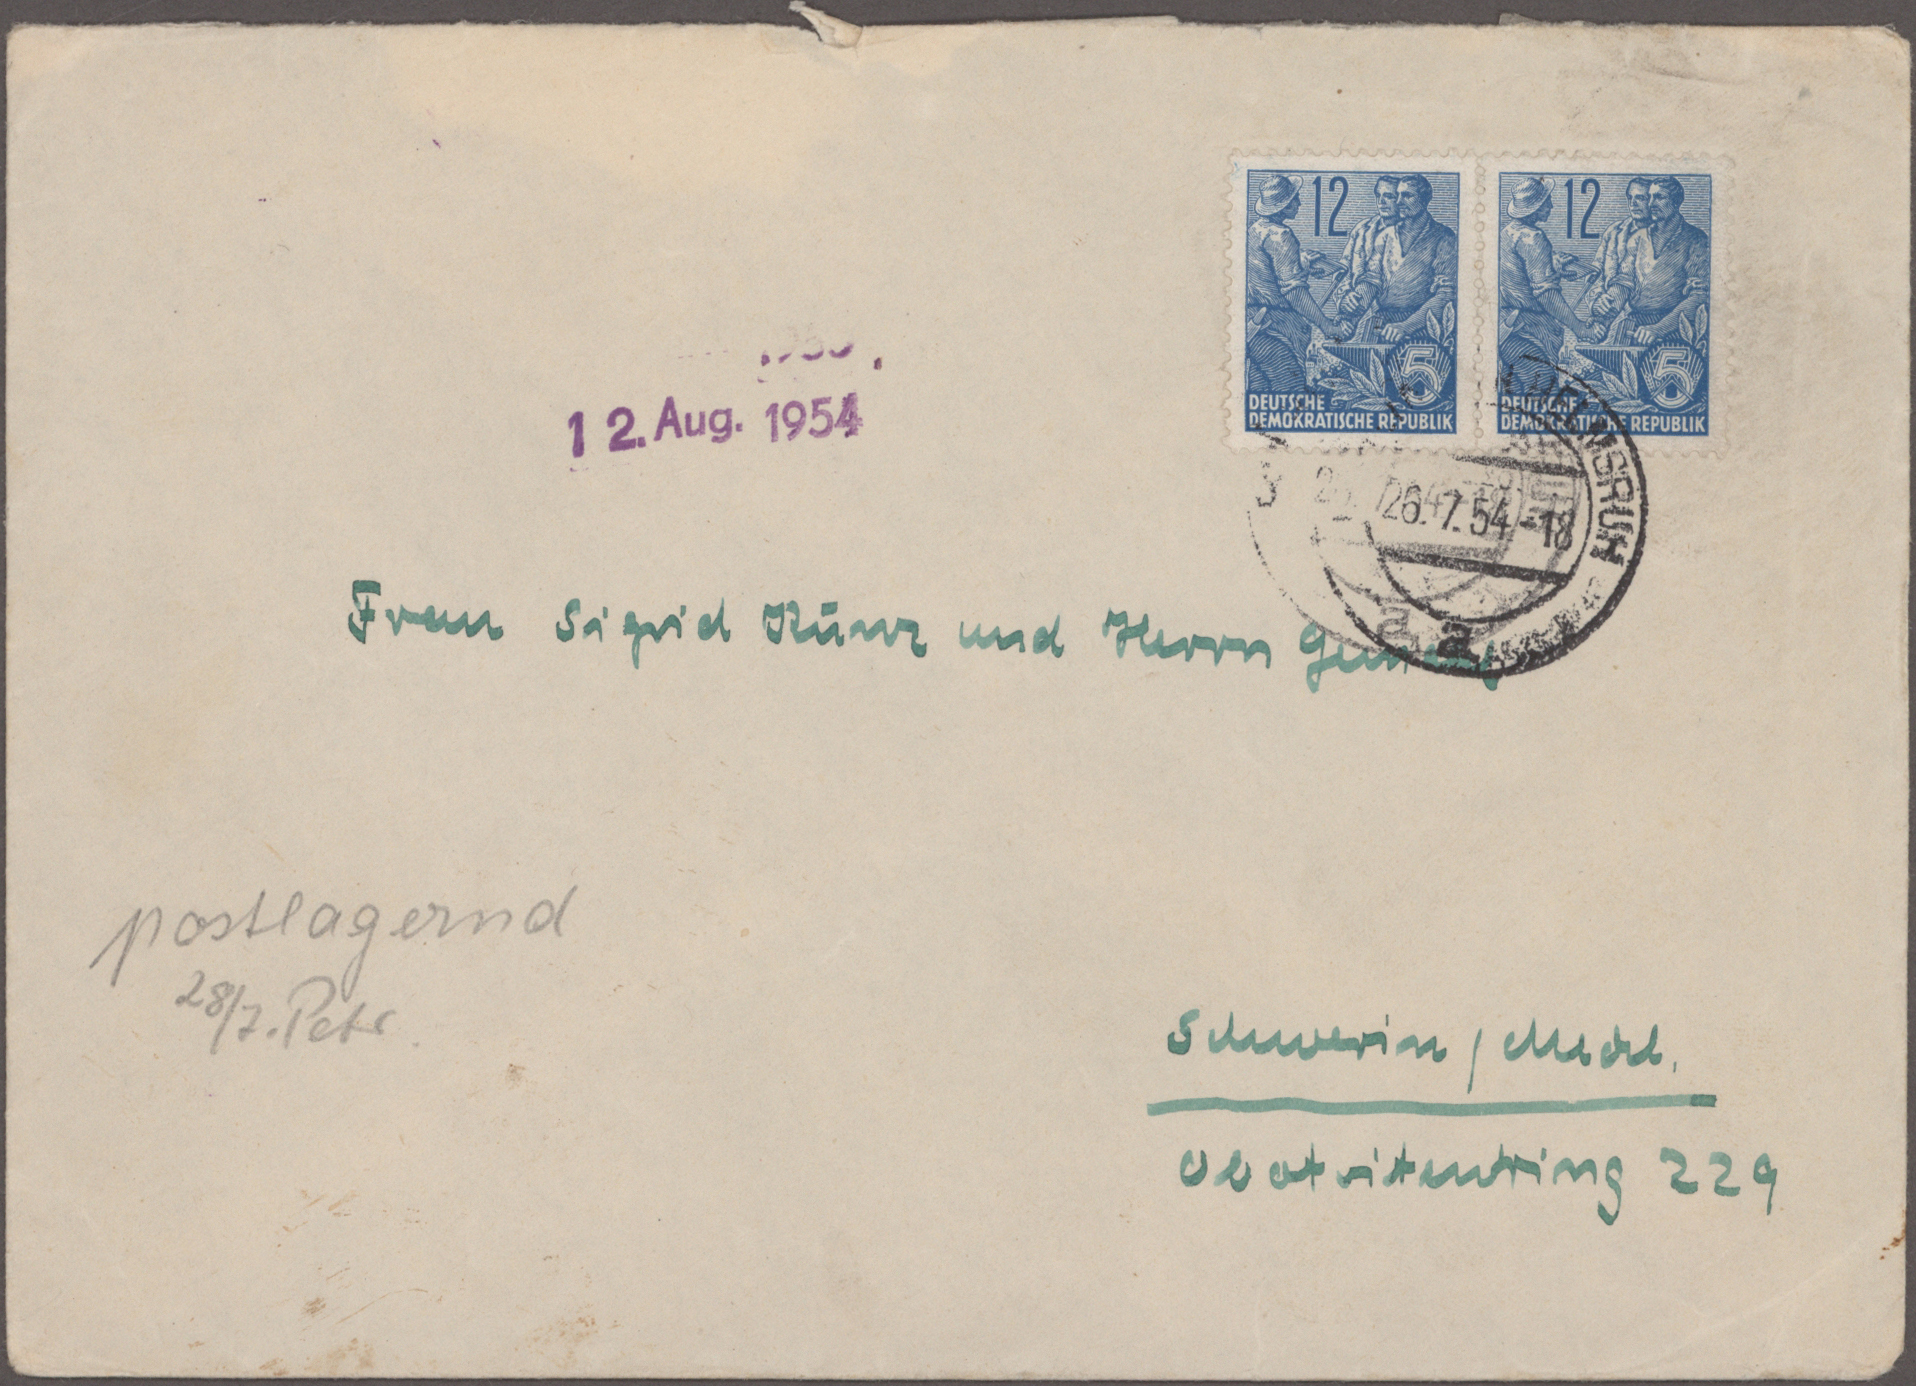 12 12
5 5
DEUTSCHE DEMOKRATISCHE REPUBLIK
DEUTSCHE DEMOKRATISCHE REPUBLIK
12. Aug. 1954
26.7.54-18
a a
Frau Sigrid und Herrn
postlagernd
28/7. Petr
Schwerin / Meckl.
Obotritenring 229